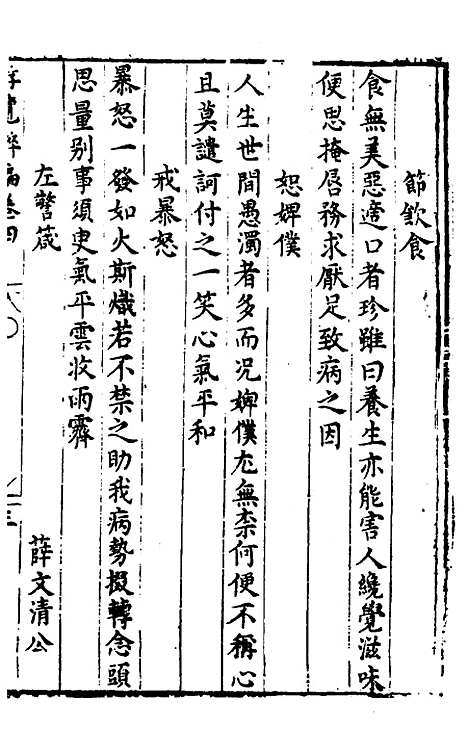 節飲食
食無美惡適口者珍雖曰養生亦能害人纔覺滋味
便思掩唇務求厭足致病之因
恕婢僕
人生世間愚濁者多而況婢僕尤無柰何便不稱心
且莫譴訶付之一笑心氣平和
戒暴怒
暴怒一發如火斯熾若不禁之助我病勢掇轉念頭
思量别事須臾氣平雲收雨霽
左警箴 薛文清公
卷四